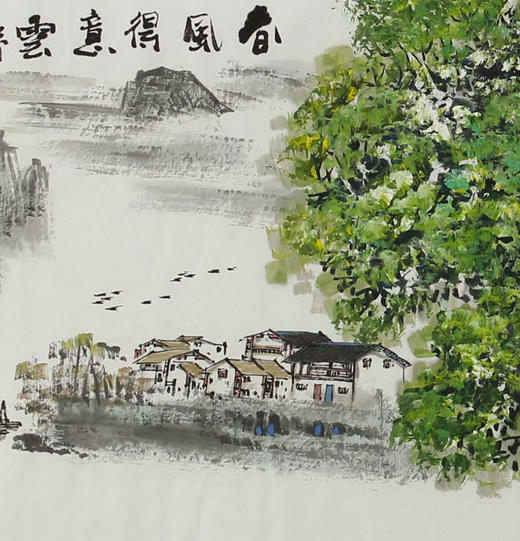 春風得意雲